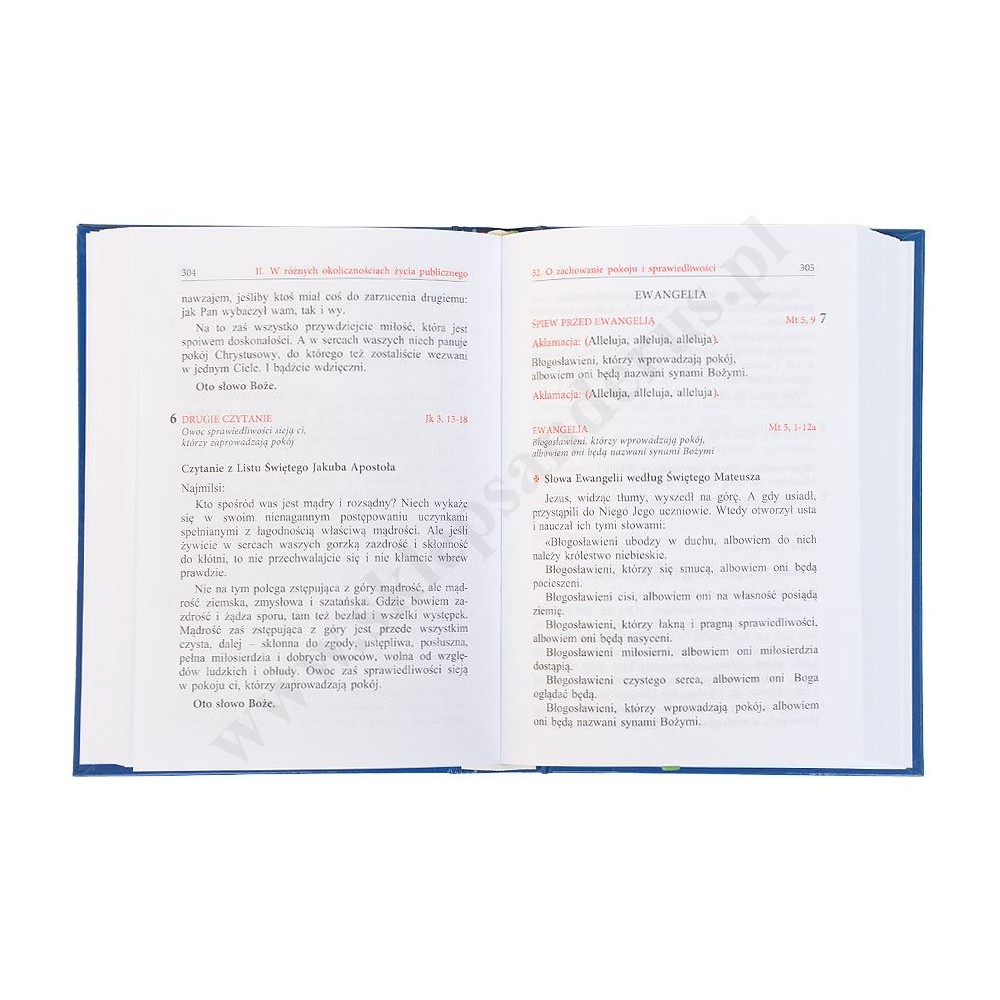 304 II. W różnych okolicznościach życia publicznego
nawzajem, jeśliby ktoś miał coś do zarzucenia drugiemu:
jak Pan wybaczył wam, tak i wy.
Na to zaś wszystko przywdziejcie miłość, która jest
spoiwem doskonałości. A w sercach waszych niech panuje
pokój Chrystusowy, do którego też zostaliście wezwani
w jednym Ciele. I bądźcie wdzięczni.
Oto słowo Boże.
6 DRUGIE CZYTANIE Jk 3, 13-18
Owoc sprawiedliwości sieją ci,
którzy zaprowadzają pokój
Czytanie z Listu Świętego Jakuba Apostoła
Najmilsi:
Kto spośród was jest mądry i rozsądny? Niech wykaże
się w swoim nienagannym postępowaniu uczynkami
spełnianymi z łagodnością właściwą mądrości. Ale jeśli
żywicie w sercach waszych gorzką zazdrość i skłonność
do kłótni, to nie przechwalajcie się i nie kłamcie wbrew
prawdzie.
Nie na tym polega zstępująca z góry mądrość, ale mąd-
rość ziemska, zmysłowa i szatańska. Gdzie bowiem za-
zdrość i żądza sporu, tam też bezład i wszelki występek.
Mądrość zaś zstępująca z góry jest przede wszystkim
czysta, dalej – skłonna do zgody, ustępliwa, posłuszna,
pełna miłosierdzia i dobrych owoców, wolna od wzglę-
dów ludzkich i obłudy. Owoc zaś sprawiedliwości sieją
w pokoju ci, którzy zaprowadzają pokój.
Oto słowo Boże.
32. O zachowanie pokoju i sprawiedliwości 305
EWANGELIA
ŚPIEW PRZED EWANGELIĄ Mt 5, 9 7
Aklamacja: (Alleluja, alleluja, alleluja).
Błogosławieni, którzy wprowadzają pokój,
albowiem oni będą nazwani synami Bożymi.
Aklamacja: (Alleluja, alleluja, alleluja).
EWANGELIA Mt 5, 1-12a
Błogosławieni, którzy wprowadzają pokój,
albowiem oni będą nazwani synami Bożymi
✠ Słowa Ewangelii według Świętego Mateusza
Jezus, widząc tłumy, wyszedł na górę. A gdy usiadł,
przystąpili do Niego Jego uczniowie. Wtedy otworzył usta
i nauczał ich tymi słowami:
«Błogosławieni ubodzy w duchu, albowiem do nich
należy królestwo niebieskie.
Błogosławieni, którzy się smucą, albowiem oni będą
pocieszeni.
Błogosławieni cisi, albowiem oni na własność posiądą
ziemię.
Błogosławieni, którzy łakną i pragną sprawiedliwości,
albowiem oni będą nasyceni.
Błogosławieni miłosierni, albowiem oni miłosierdzia
dostąpią.
Błogosławieni czystego serca, albowiem oni Boga
oglądać będą.
Błogosławieni, którzy wprowadzają pokój, albowiem
oni będą nazwani synami Bożymi.